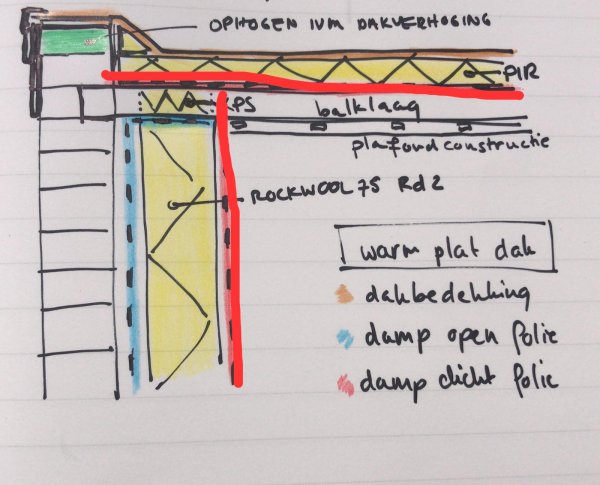 OPHOGEN IVM DAKVERHOGING
PIR
PS
balklaag
plafondconstructie
ROCKWOOL 75 Rd 2
warm plat dak
dakbedekking
damp open folie
damp dicht folie